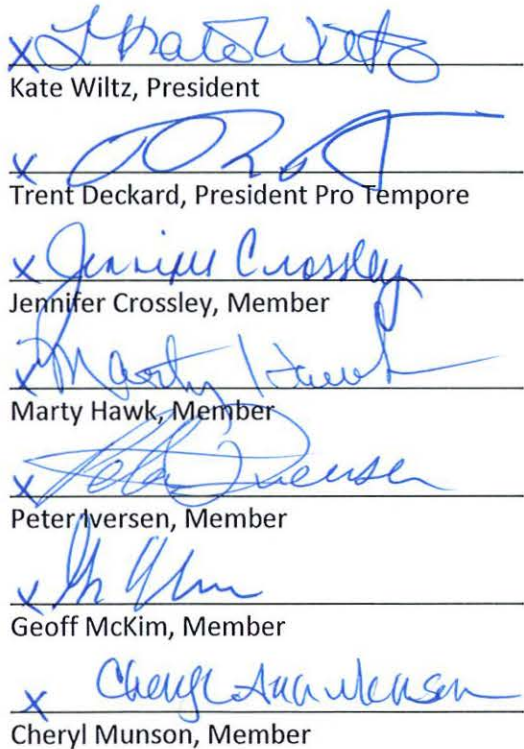 x J Kate Wiltz
Kate Wiltz, President
x
Trent Deckard, President Pro Tempore
x Jennifer Crossley
Jennifer Crossley, Member
x Marty Hawk
Marty Hawk, Member
x Peter Iversen
Peter Iversen, Member
x
Geoff McKim, Member
x Cheryl Ann Munson
Cheryl Munson, Member